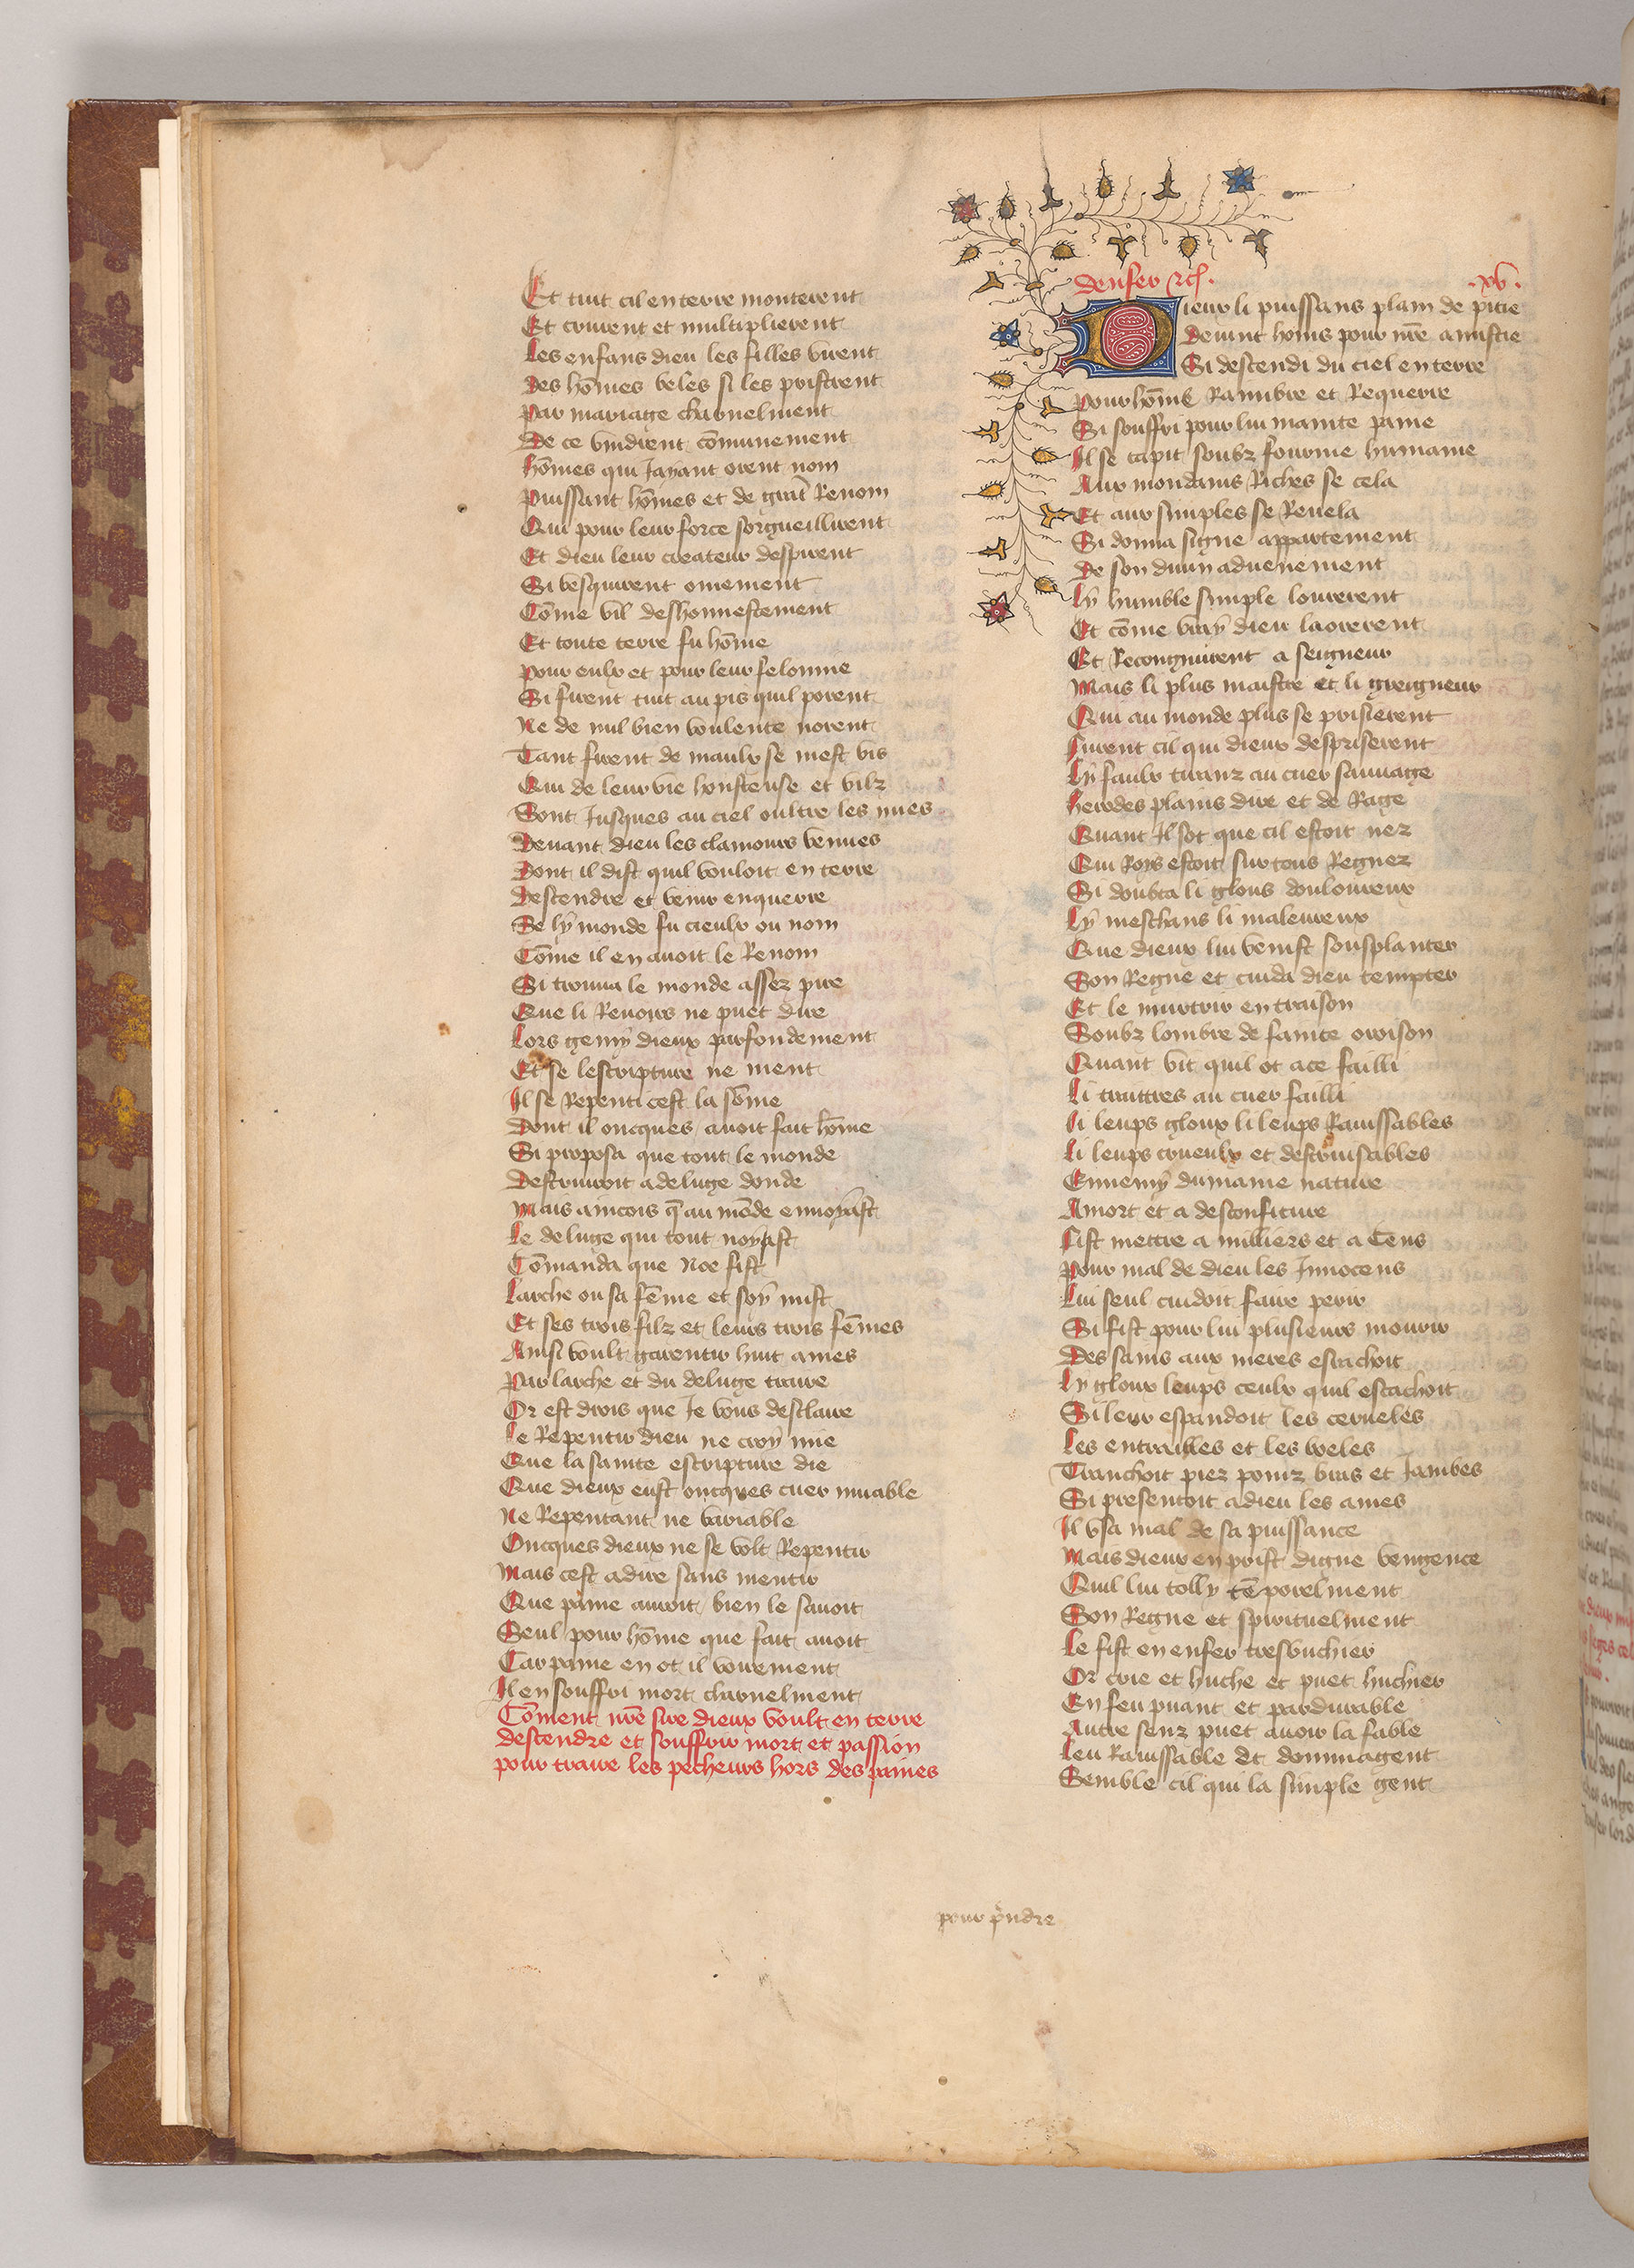 Et tuit cil en terre monterent
Et crurent et multiplierent
Les enfans dieu les filles virent
Des hõmes beles si les pristrent
Par mariage charnelment
De ce vindrent cõmunement
Hõmes qui Jayant orent nom
Puissant hõmes et de grãt Renom
Qui pour leur force sorgueillirent
Et dieu leur createur despirent
Si vesquirent ornement
Cõme vil deshonnestement
Et toute terre fu hõnie
Pour eulx et pour leur felonnie
Si firent tuit au pis quil porent
Ne de nul bien voulente norent
Tant firent de maulx se mest vis
Qui de leur vie honteuse et vilz
Sont Jusques au ciel oultre les nues
Devant dieu les clamours venues
Dont il dist quil vouloit en terre
Descendre et venir enquerre
Se ly monde fu cieulx ou nom
Cõme il en avoit le Renom
Si trouva le monde assez pire
Que li Renoirs ne puet dire
Lors gemy dieux parfondement
Et se lescripture ne ment
Il se Repenti cest la sõme
Dont il oncques avoit fait hõme
Si proposa que tout le monde
Destruiroit a deluge donde
Mais aincois q̃ au mõde envoyast
Le deluge qui tout noyast
Cõmanda que Noe fist
Larche ou sa fẽme et soy mist
Et ses trois filz et leurs trois fẽmes
Ainsi voult garentir huit ames
Par larche et du deluge traire
Or est drois que Je vous desclaire
Le Repentir dieu ne croy mie
Que la sainte escripture die
Que dieux eust oncques cuer muable
Ne Repentant ne variable
Oncques dieux ne se volt Repentir
Mais cest a dire sans mentir
Que paine auroit bien le savoit
Seul pour hõme que fait avoit
Car paine en ot il vrayement
Il en souffri mort charnelment
Cõment nr̃e sire dieux voult en terre
descendre et souffrir mort et passion
pour traire les pecheurs hors des paines
denfer .xv.
Dieux li puissans plain de pitie
Devint homs pour nr̃e amistie
Si descendi du ciel en terre
Pour hõme Raimbre et Requerre
Si souffri pour lui mainte paine
Il se tapit soubz fourme humaine
Aux mondains Riches se cela
Et aux simples se Revela
Si donna signe appartement
De son divin advenement
Ly humble simple lourerent
Et cõme vray dieu laorerent
Et Recongnurent a seigneur
Mais li plus maistre et li greigneur
Qui au monde plus se prisierent
Furent cil qui dieux despriserent
Ly faulx tiranz au cuer sauvage
Herodes plains dire et de Rage
Quant Il sot que cil estoit nez
Qui Roys estoit sur tous Regnez
Si doubta li glous doulereux
Ly meschans li maleureux
Que dieux lui venist sousplanter
Son Regne et cuida dieu tempter
Et le murtrir en traison
Soubz lombre de sainte oroison
Quant vit quil ot a ce failli
Li traittres au cuer failli
Li leups gloux li leups Ravissables
Li leups crueulx et destruisables
Ennemy dumaine nature
A mort et a desconfiture
Fist mettre a milliers et a Cens
Pour mal de dieu les Innocens
Lui seul cuidoit faire perir
Si fist pour lui plusieurs mourir
Des sains aux meres esrachoit
Ly gloux leups ceulx quil escachoit
Si leur espandoit les cerveles
Les entrailles et les boeles
Tranchoit piez poinz bras et Jambes
Si presentoit a dieu les ames
Il usa mal de sa puissance
Mais dieux en prist digne vengence
Quil lui tolly tẽporelment
Son Regne et spirituelment
Le fist en enfer tresbuchier
Or crie et huche et puet huchier
En feu puant et pardurable
Autre senz puet avoir la fable
Leu Ravissable et dommagent
Semble cil qui la simple gent
pour pr̃ndre